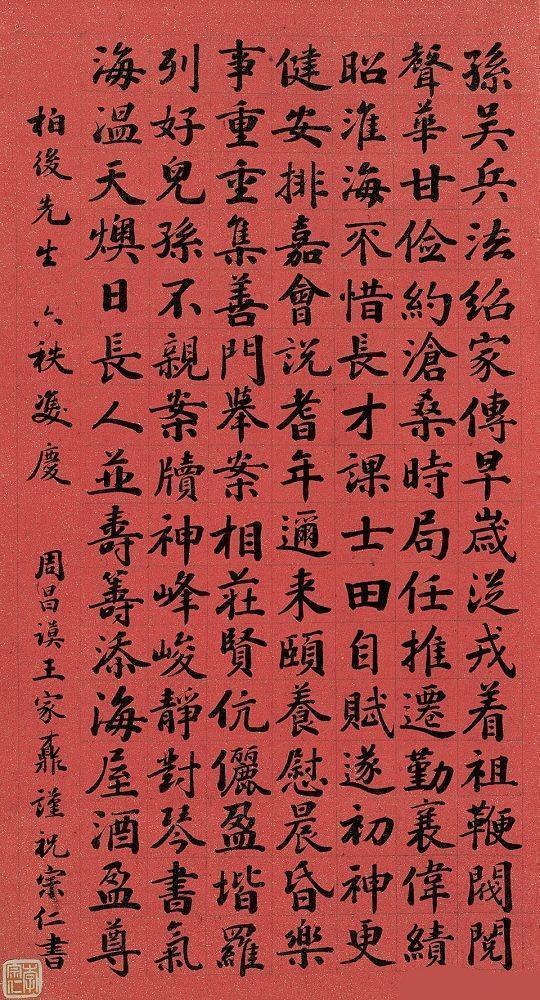 孫吳兵法紹家傳早歲從戎着祖鞭閥閱
聲華甘儉約滄桑時局任推遷勤襄偉績
昭淮海不惜長才課士田自賦遂初神更
健安排嘉會説耆年邇来頤養慰晨昏樂
事重重集善門擧案相莊賢伉儷盈堦羅
列好兒孫不親案牘神峰峻靜對琴書氣
海溫天燠日長人並壽籌添海屋酒盈尊
柏後先生 六秩雙慶 周昌謨王家鼐謹祝宗仁書
李宗仁